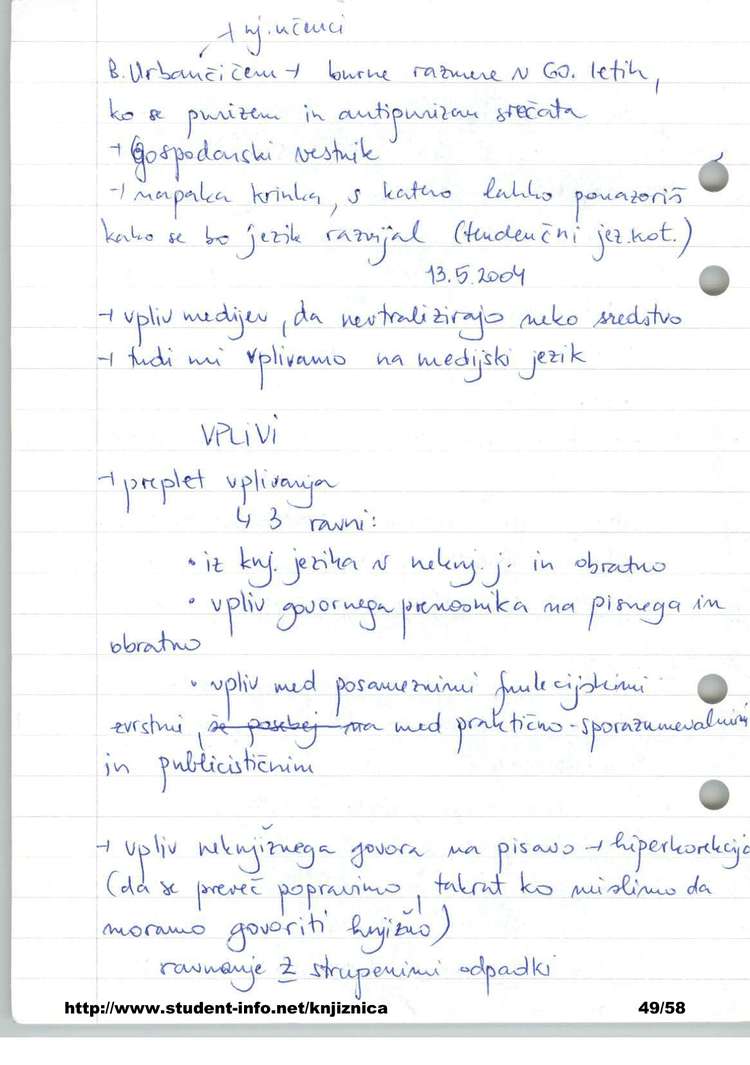 → nj. učenci
B. Urbančičem → burne razmere v 60. letih,
ko se purizem in antipurizem srečata
→ Gospodarski vestnik
→ napaka krinka, s katero lahko ponazoriš
kako se bo jezik razvijal (tendenčni jez. kot.)
13.5.2004
→ vpliv medijev, da nevtralizirajo neko sredstvo
→ tudi mi vplivamo na medijski jezik
VPLIVI
→ preplet vplivanja
↳ 3 ravni:
• iz knj. jezika v neknj. j. in obratno
• vpliv govornega prenosnika na pisnega in
obratno
• vpliv med posameznimi funkcijskimi
zvrstmi, še posebej na med praktično-sporazumevalnimi
in publicističnim
→ vpliv neknjižnega govora na pisavo → hiperkorekcija
(da se preveč popravimo, takrat ko mislimo da
moramo govoriti knjižno)
ravnanje z strupenimi odpadki
http://www.student-info.net/knjiznica 49/58